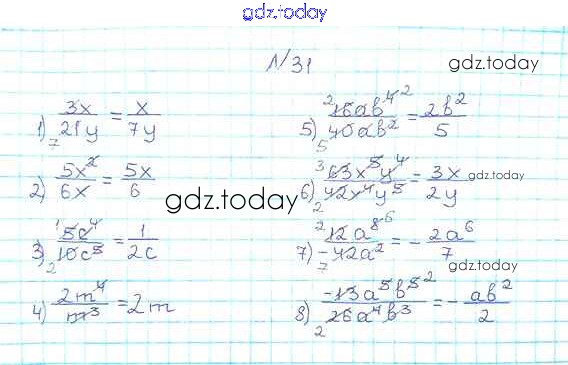 gdz.today
N31
gdz.today
1) 3x/21y = x/7y
7
2) 5x²/6x = 5x/6
gdz.today
3) 5c⁴/10c⁵ = 1/2c
1
2
4) 2m⁴/m³ = 2m
5) 16ab⁴/40ab² = 2b²/5
2 2
5
6) 63x⁵y⁴/42x⁴y⁵ = 3x/2y
3
2
gdz.today
7) 12a⁸/-42a² = -2a⁶/7
2 6
7
gdz.today
8) -13a⁵b⁵/26a⁴b³ = -ab²/2
2
2